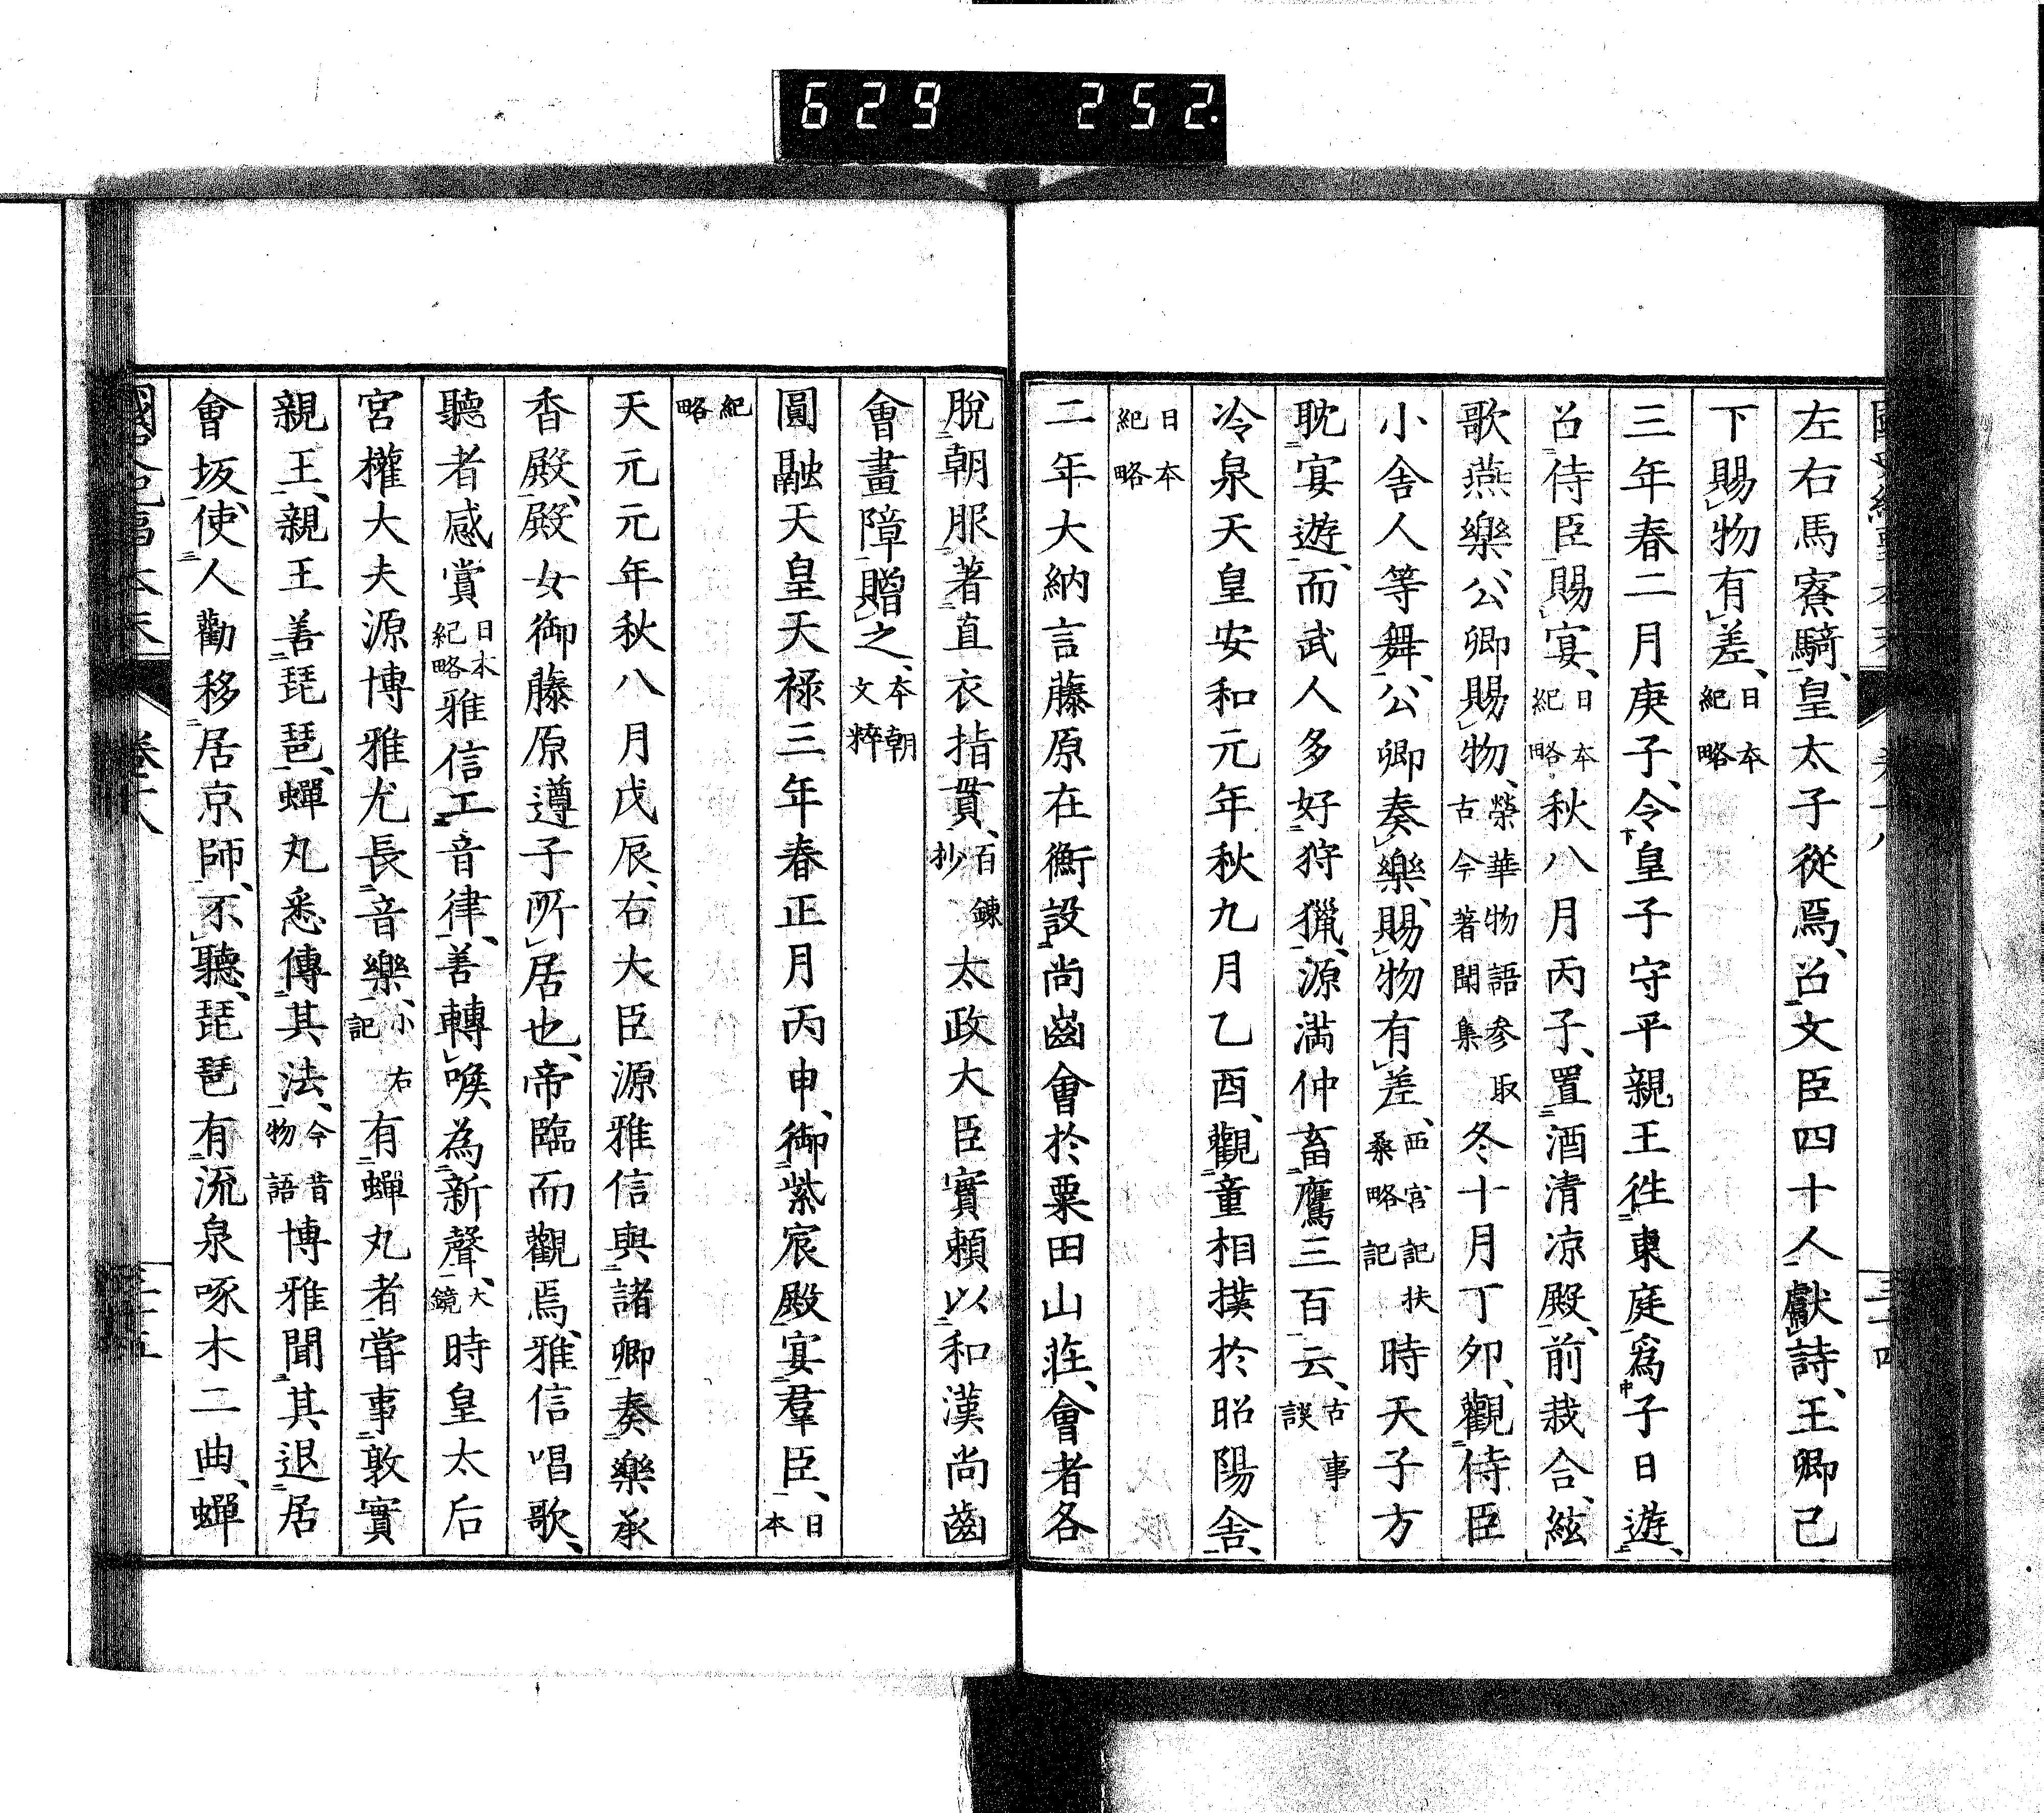 629 252
左右馬寮騎、皇太子從焉、召文臣四十人獻詩、王卿已
下賜物有差、日本紀略
三年春二月庚子、令皇子守平親王徃東庭爲子日遊、
召侍臣賜宴、日本紀略秋八月丙子、置酒清凉殿、前栽合、絃
歌燕樂、公卿賜物、榮華物語參取古今著聞集冬十月丁夘、觀侍臣
小舍人等舞、公卿奏樂、賜物有差、西宮記扶桑略記時天子方
耽宴遊、而武人多好狩獵、源満仲畜鷹三百云、古事談
冷泉天皇安和元年秋九月乙酉、觀童相撲於昭陽舍、
日本紀略
二年大納言藤原在衡設尚齒會於粟田山莊、會者各
脫朝服著直衣指貫、百錬抄太政大臣實頼以和漢尚齒
會畫障贈之、本朝文粹
圓融天皇天禄三年春正月丙申、御紫宸殿宴羣臣、日本
紀略
天元元年秋八月戊辰、右大臣源雅信與諸卿奏樂承
香殿、殿女御藤原遵子所居也、帝臨而觀焉、雅信唱歌、
聽者感賞日本紀略雅信工音律、善轉喉、為新聲、大鏡時皇太后
宮權大夫源博雅尤長音樂、小右記有蟬丸者嘗事敦實
親王、親王善琵琶、蟬丸悉傳其法、今昔物語博雅聞其退居
會坂、使人勸移居京師、不聽、琵琶有流泉啄木二曲、蟬